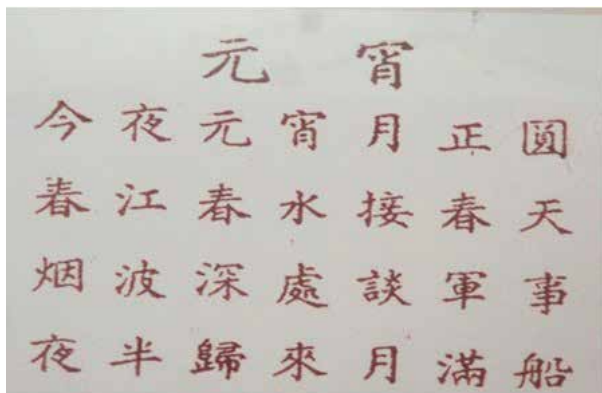 元宵
今夜元宵月正圓
春江春水接春天
烟波深處談軍事
夜半歸來月滿船